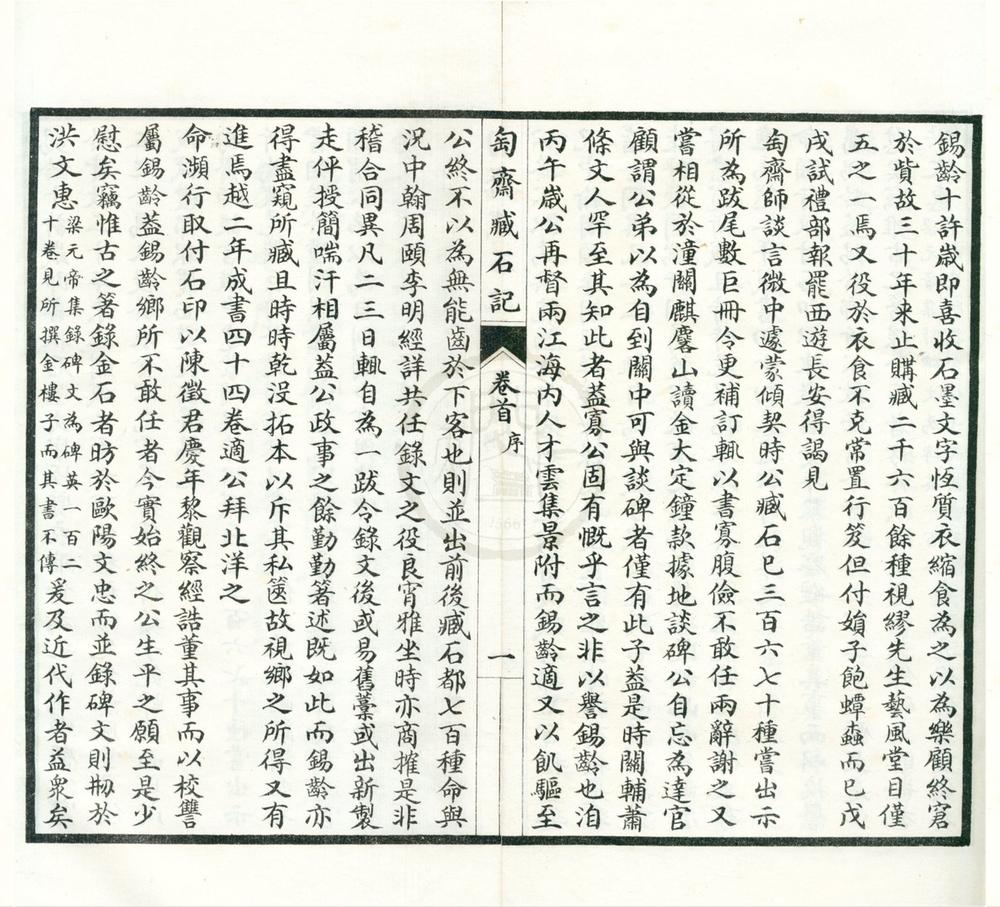 錫齡十許歲即喜收石墨文字恆質衣縮食為之以為樂顧終窘
於貲故三十年來止購臧二千六百餘種視繆先生藝風堂目僅
五之一焉又役於衣食不克常置行笈但付媍子飽蟫蟲而已戊
戌試禮部報罷西遊長安得謁見
匋齋師談言微中遽蒙傾契時公臧石巳三百六七十種嘗出示
所為跋尾數巨冊令更補訂輒以書寡腹儉不敢任兩辭謝之又
嘗相從於潼關麒麐山讀金大定鐘款據地談碑公自忘為達官
顧謂公弟以為自到關中可與談碑者僅有此子葢是時關輔蕭
條文人罕至其知此者葢寡公固有慨乎言之非以譽錫齡也洎
丙午歲公再督兩江海內人才雲集景附而錫齡適又以飢驅至
匋齋臧石記
卷首 序
一
公終不以為無能齒於下客也則並出前後臧石都七百種命與
況中翰周頤李明經詳共任錄文之役良宵雅坐時亦商搉是非
稽合同異凡二三日輒自為一跋令錄文後或易舊藁或出新製
走伻授簡喘汗相屬葢公政事之餘勤勤箸述旣如此而錫齡亦
得盡窺所臧且時時乾沒拓本以斥其私篋故視鄉之所得又有
進焉越二年成書四十四卷適公拜北洋之
命瀕行取付石印以陳徵君慶年黎觀察經誥董其事而以校讐
屬錫齡葢錫齡鄉所不敢任者今實始終之公生平之願至是少
慰矣竊惟古之著錄金石者昉於歐陽文忠而並錄碑文則刱於
洪文惠梁元帝集錄碑文為碑英一百二十卷見所撰金樓子而其書不傳爰及近代作者益衆矣